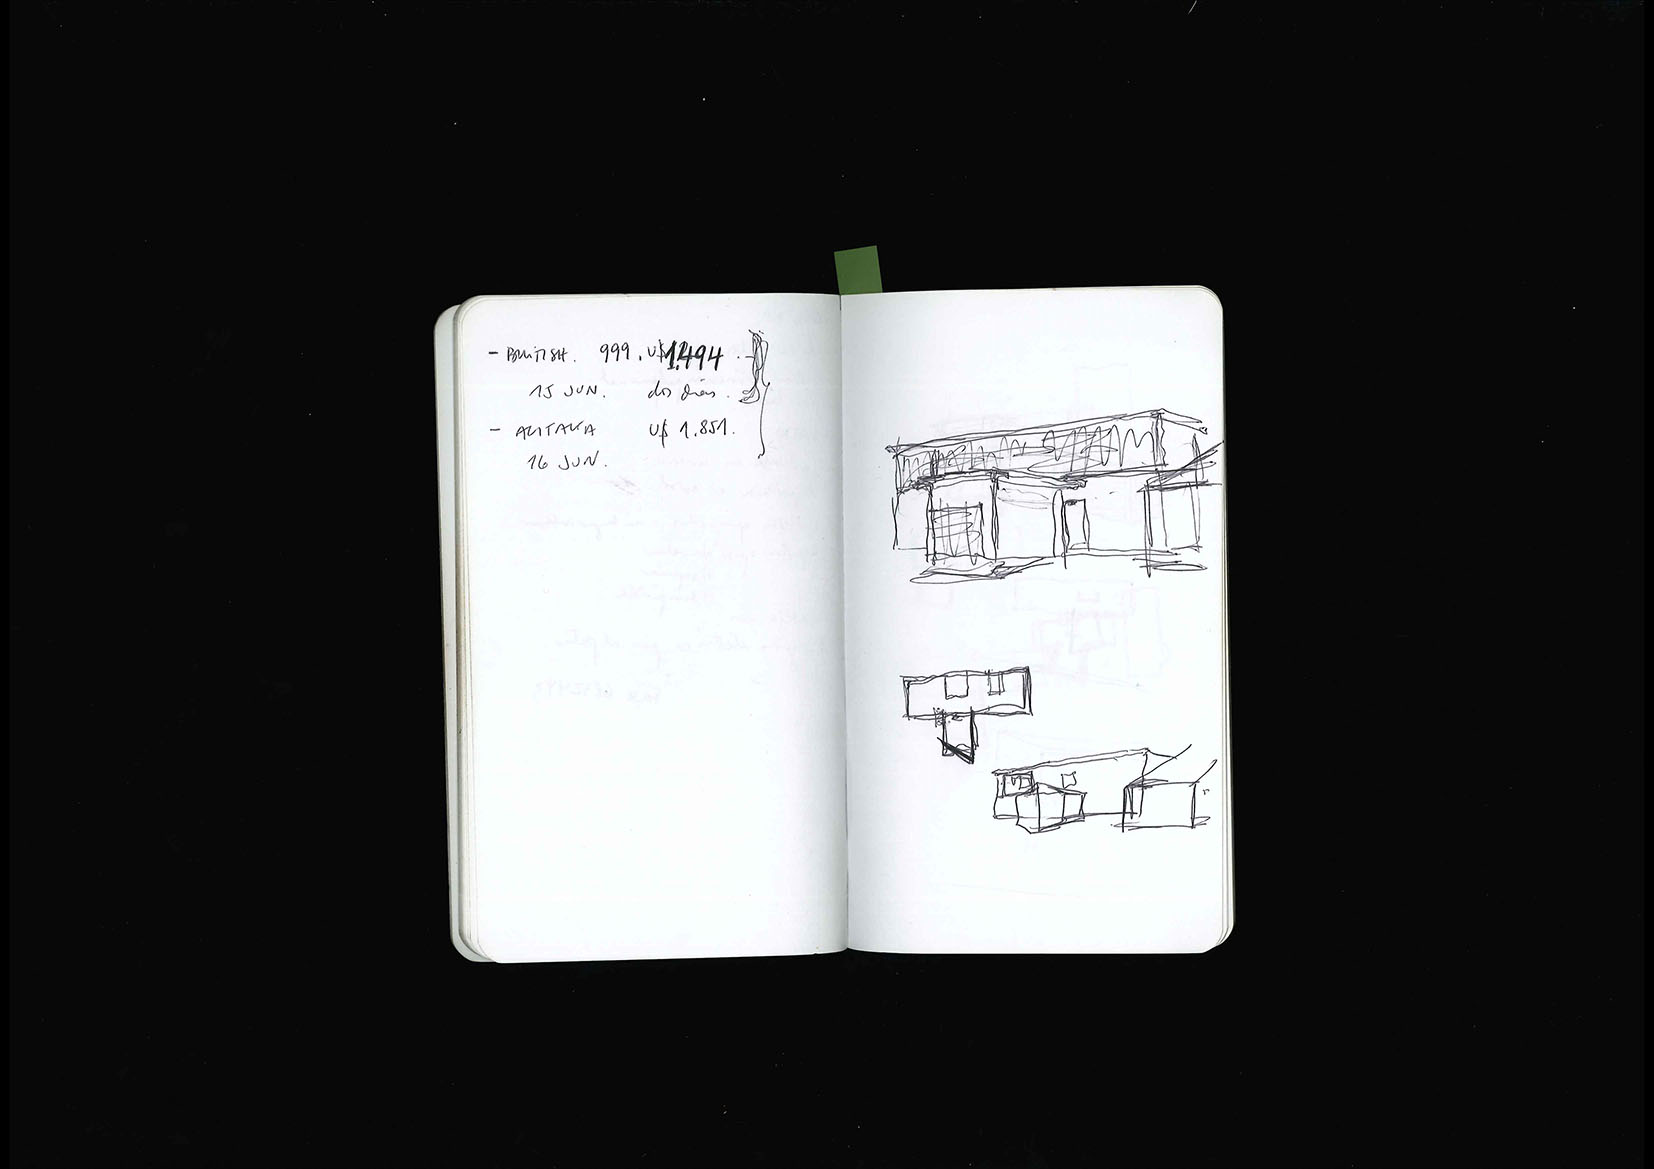 - BRITISH. 999. U$ 1.494
15 JUN. dos días.
- ALITALIA U$ 1.851.
16 JUN.